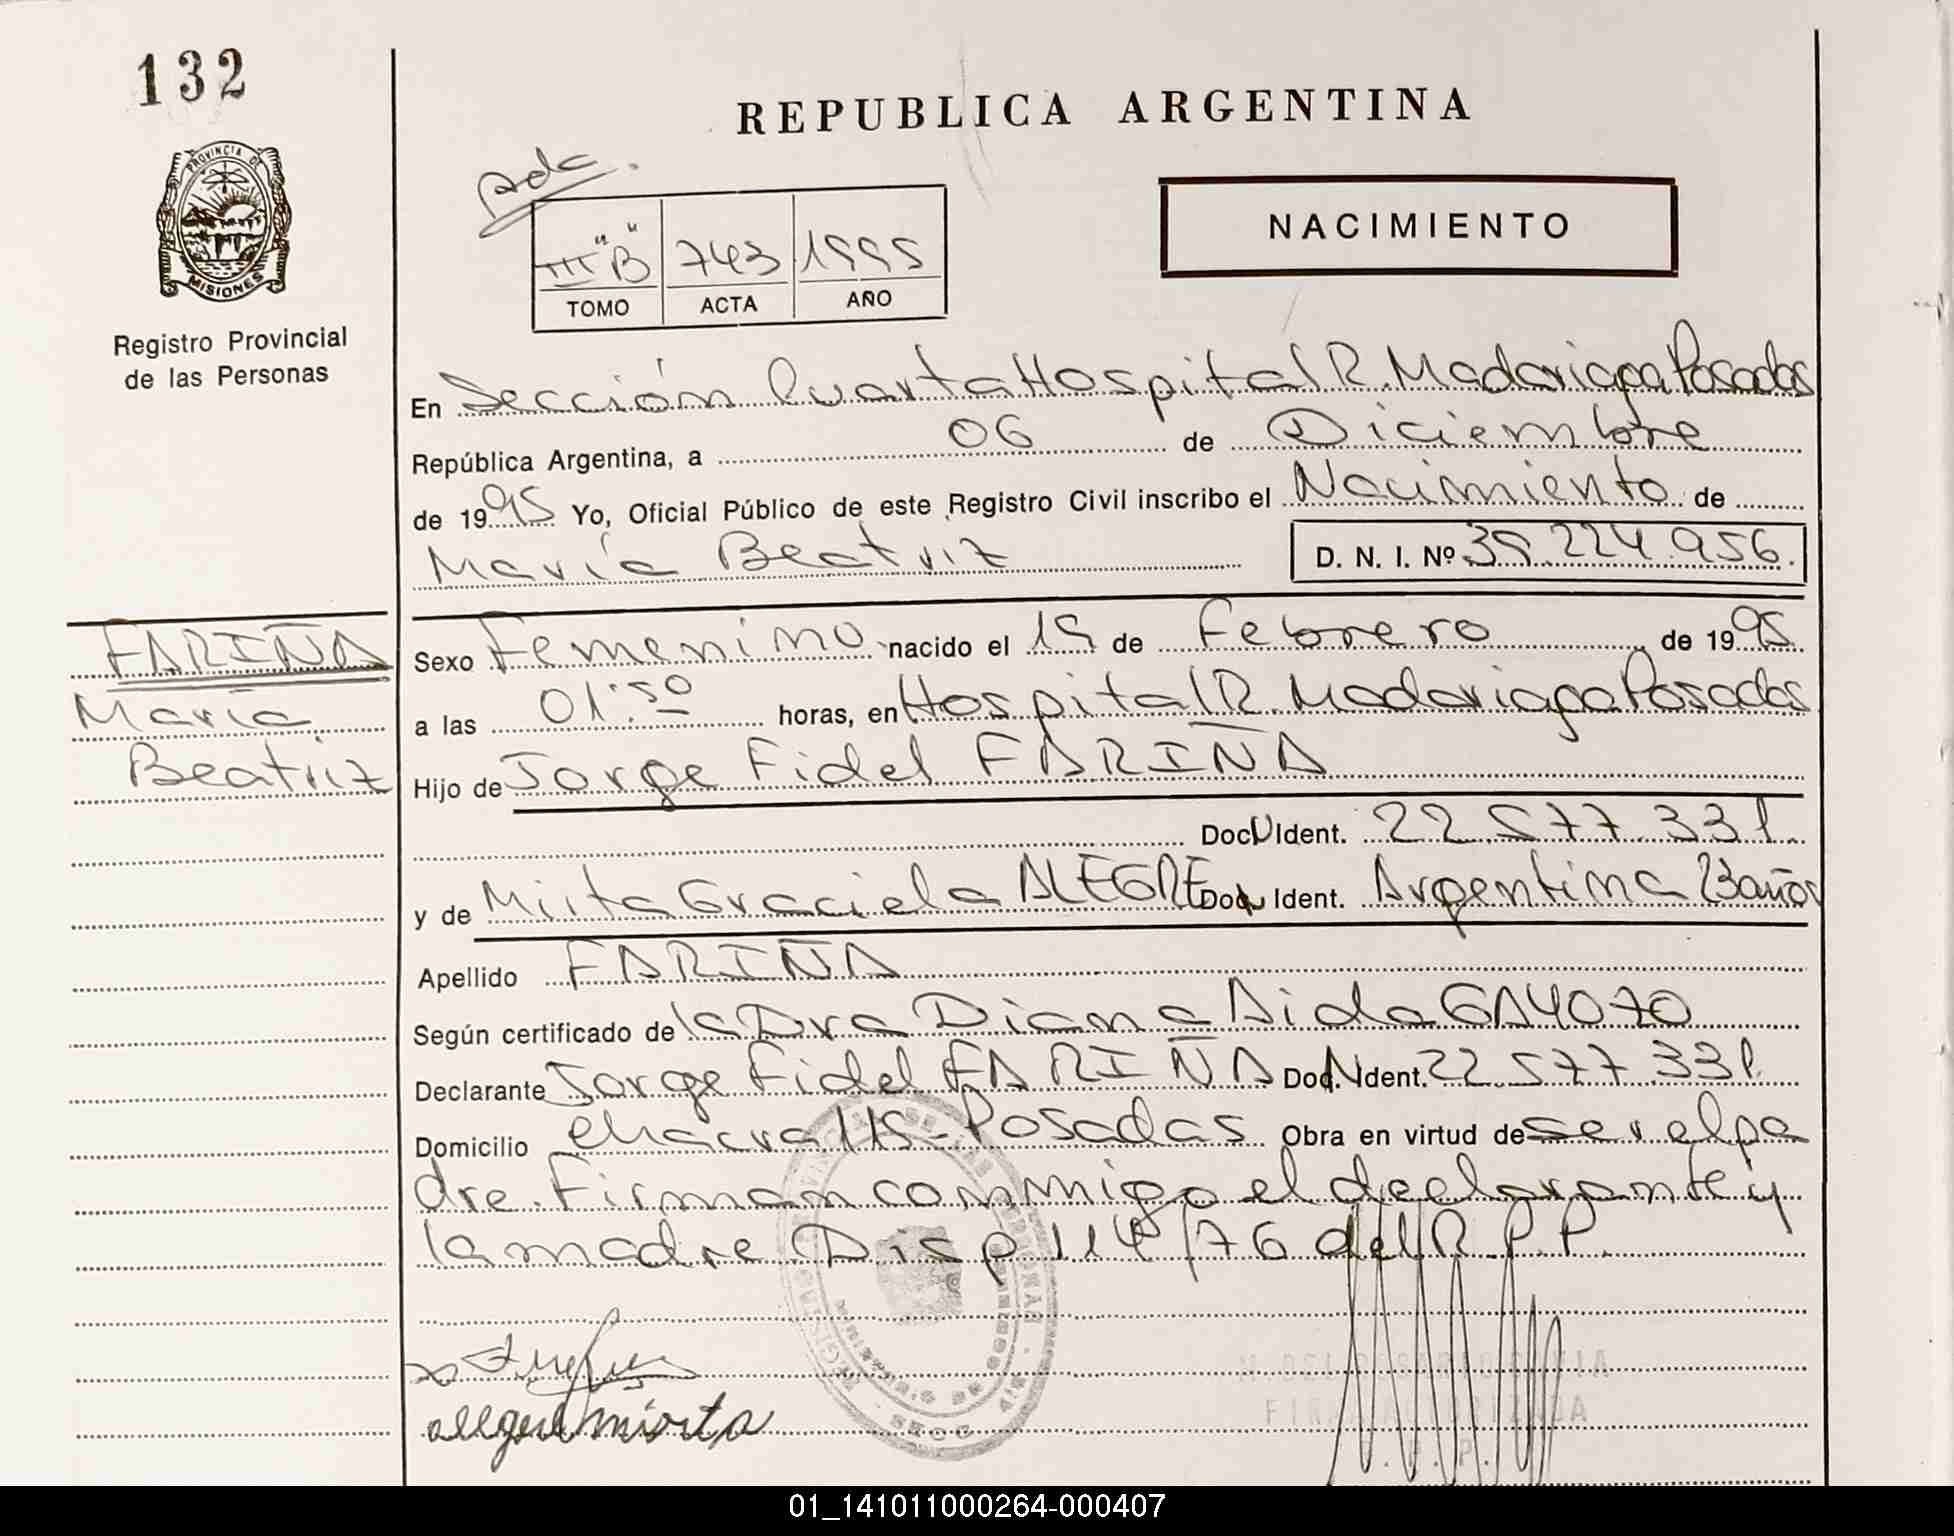 132
REPUBLICA ARGENTINA
PROVINCIA DE
MISIONES
Registro Provincial
de las Personas
NACIMIENTO
III "B" 743 1995
TOMO ACTA AÑO
En Sección Cuarta Hospital R. Madariaga Posadas
República Argentina, a 06 de Diciembre
de 1995 Yo, Oficial Público de este Registro Civil inscribo el Nacimiento de
María Beatriz D. N. I. Nº 39.224.956.
FARIÑA
María
Beatriz
Sexo Femenino nacido el 19 de Febrero de 1995
a las 01:50 horas, en Hospital R. Madariaga Posadas
Hijo de Jorge Fidel FARIÑA
Doc. Ident. 22.577.331.
y de Mirta Graciela ALEGRE Doc. Ident. Argentina 23 años
Apellido FARIÑA
Según certificado de la Dra Diana Aida
Declarante Jorge Fidel FARIÑA Doc. Ident. 22.577.331.
Domicilio chacra 115 - Posadas Obra en virtud de ser el pa
dre. Firman conmigo el declarante y
la madre. Disp 114/76 del R.P.P.
alegre mirta
01_141011000264-000407